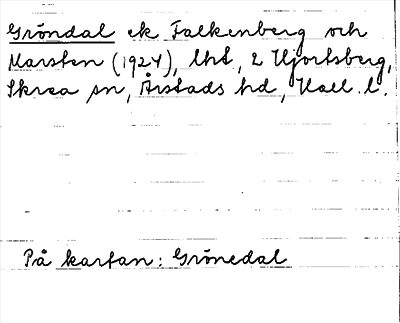 Gröndal ek Falkenberg och
Marsten (1924), lht, 2 Hjortsberg,
Skrea sn, Årstads hd, Hall. l.
På kartan: Grönedal